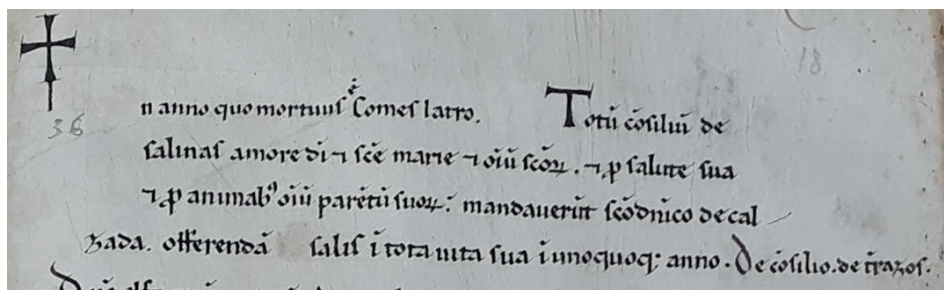 18
36
n anno quo mortuus ē Comes latro. Totū cōsiliū de
salinas amore dī ⁊ scē marie ⁊ oīū scōꝝ. ⁊ ꝓ salute sua
⁊ ꝓ animab᾽ oīū parētū suoꝝ: mandaverūt scōdnīco de cal
zada. offerendā salis ī tota vita sua ī unoquoqꝫ anno. De cōsilio. de tr̄azos.